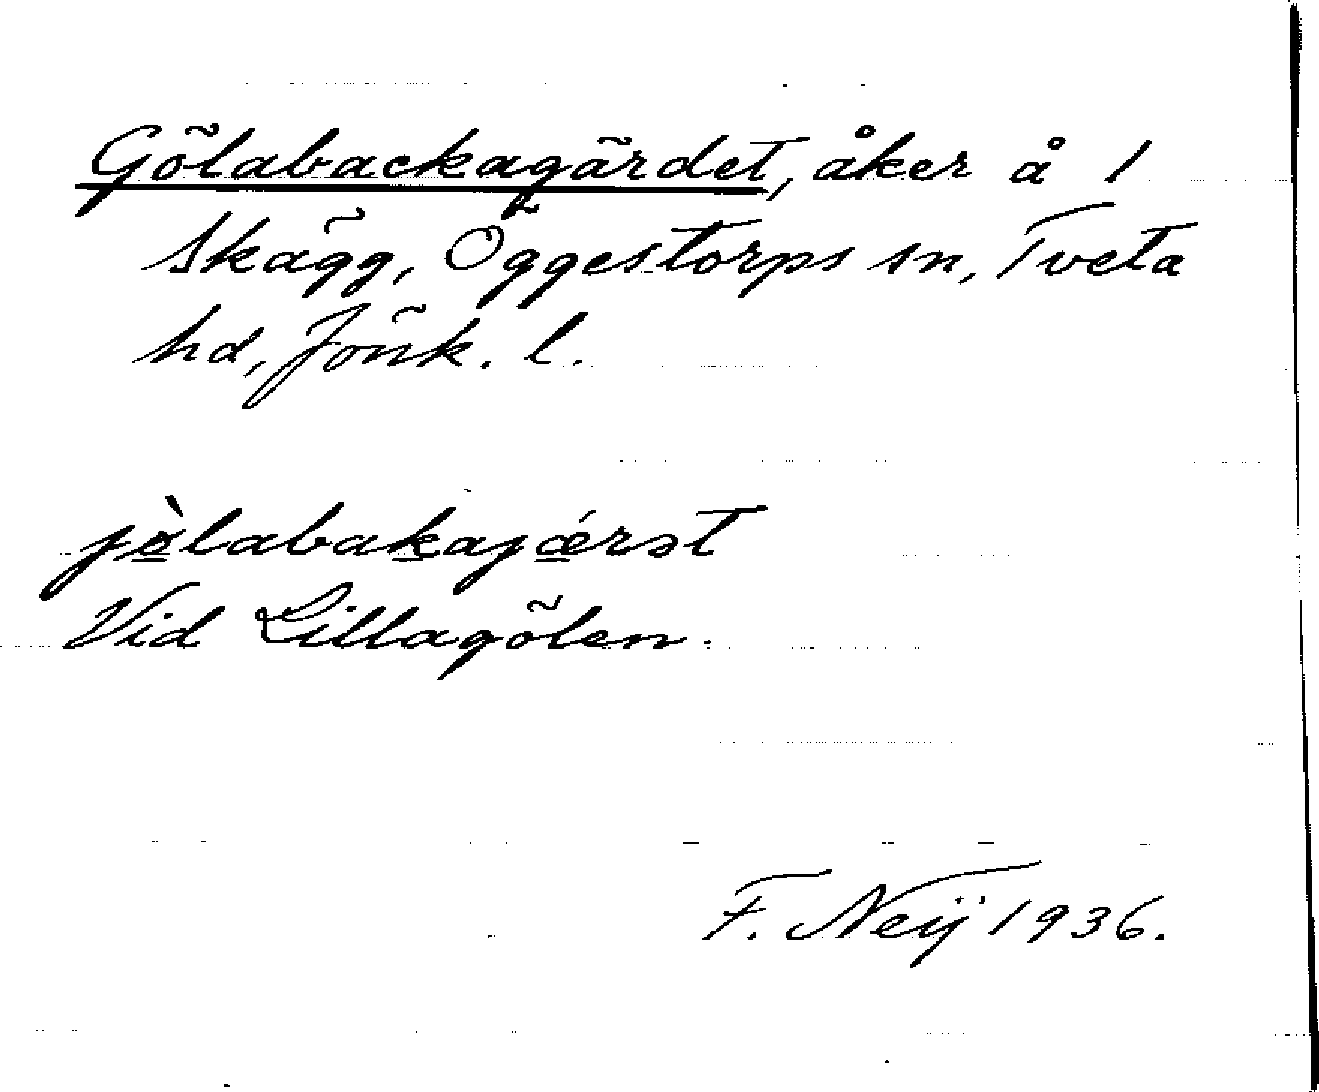 Gölabackagärdet, åker å 1
Skägg, Öggestorps sn, Tveta
hd, Jönk. l.
jø̀labakajǽrst
Vid Lillagölen.
F. Neij 1936.